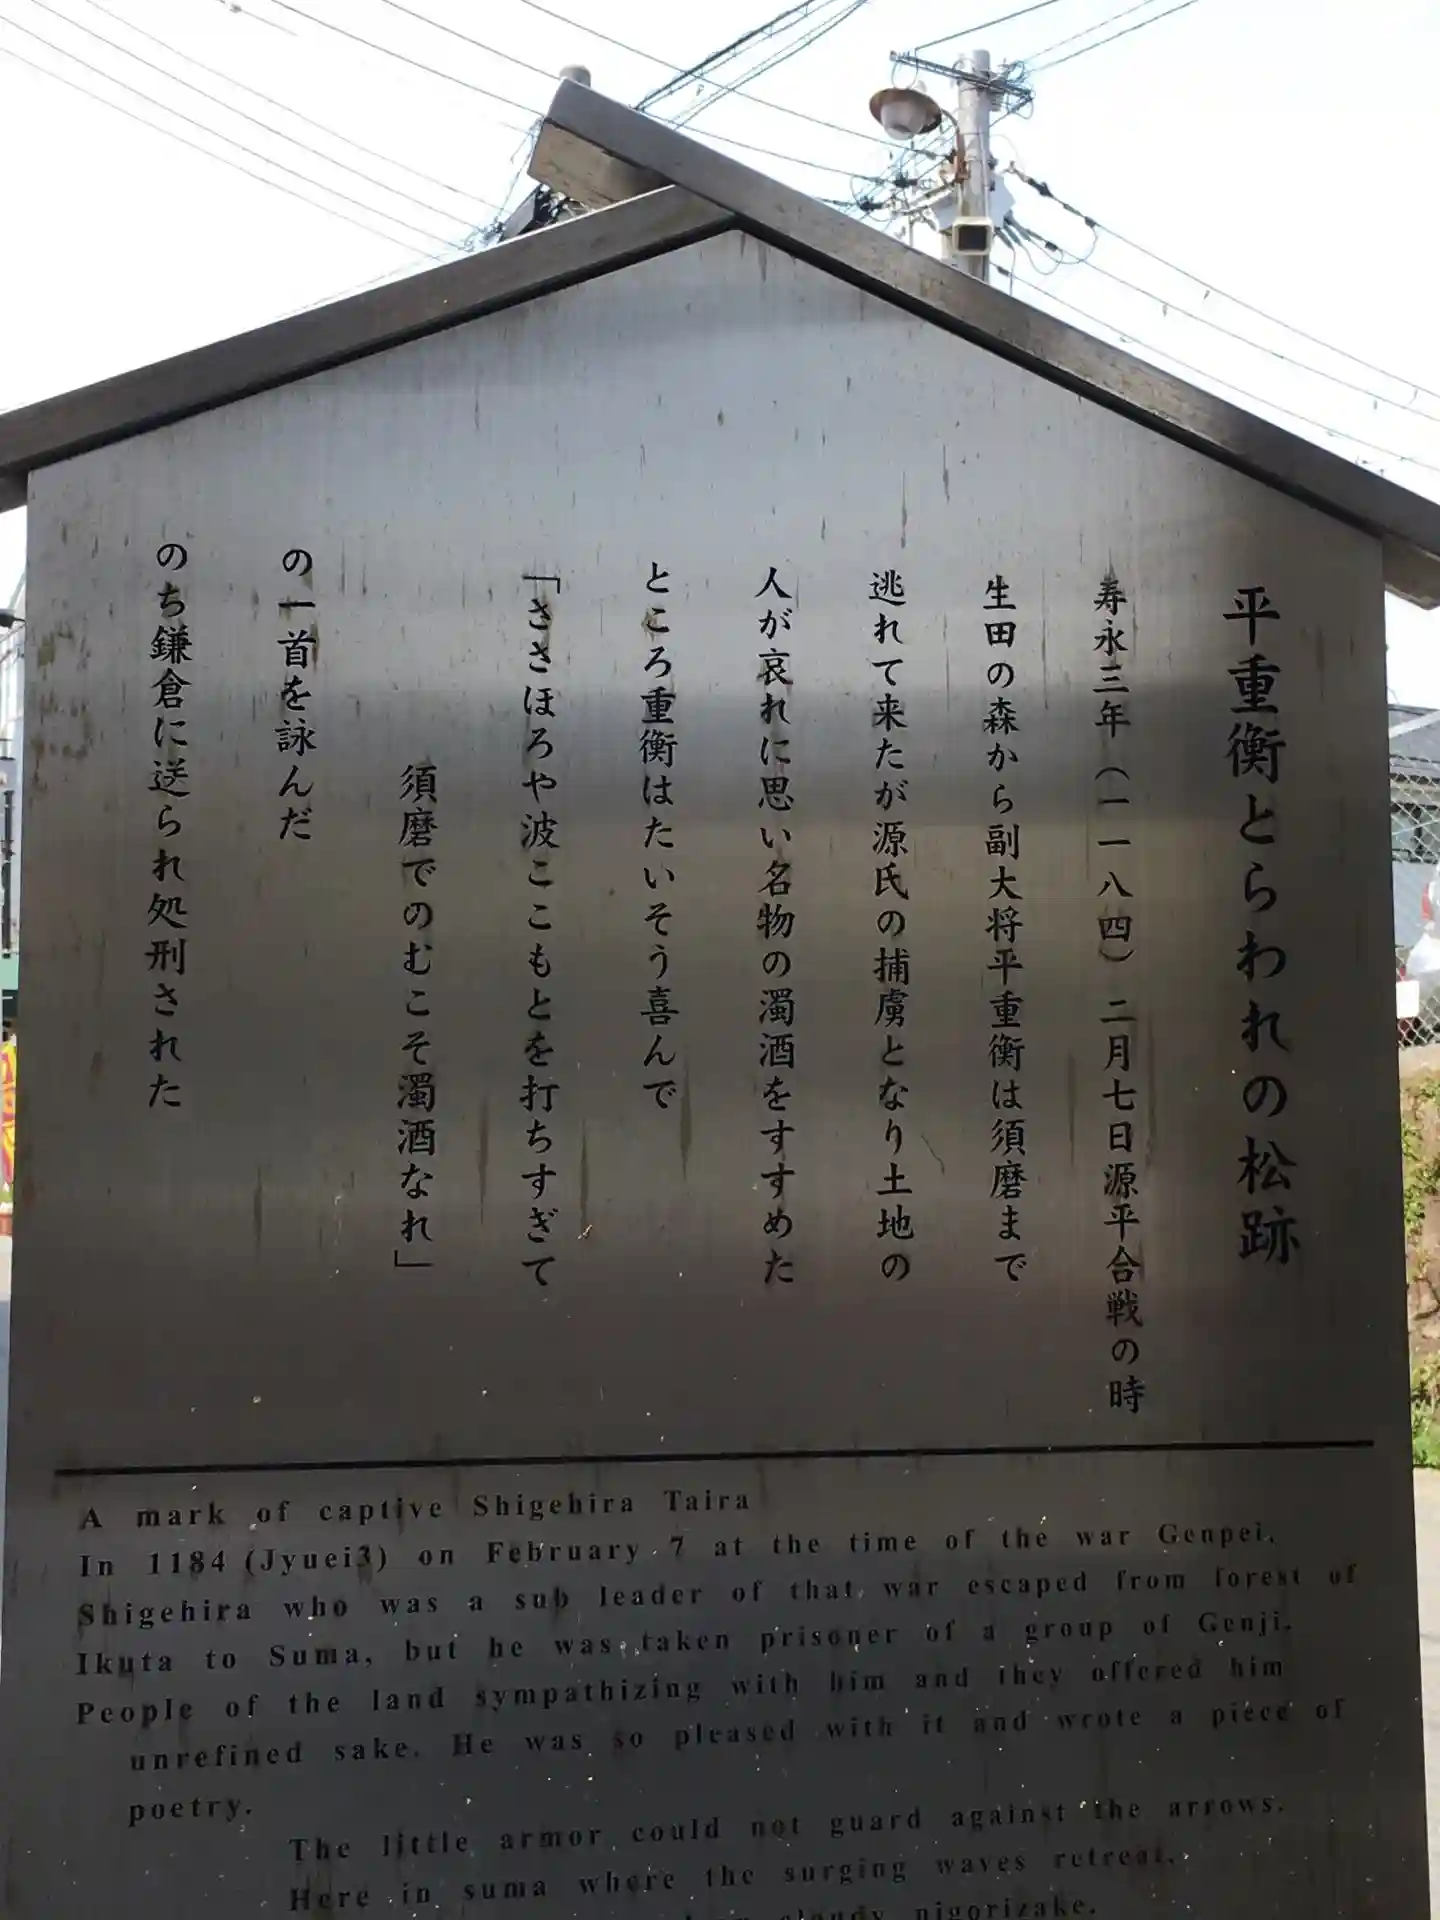 平重衡とらわれの松跡
寿永三年(一一八四)二月七日源平合戦の時
生田の森から副大将平重衡は須磨まで
逃れて来たが源氏の捕虜となり土地の
人が哀れに思い名物の濁酒をすすめた
ところ重衡はたいそう喜んで
「ささほろや波ここもとを打ちすぎて
須磨でのむこそ濁酒なれ」
の一首を詠んだ
のち鎌倉に送られ処刑された
A mark of captive Shigehira Taira
In 1184 (Jyuei3) on February 7 at the time of the war Genpei.
Shigehira who was a sub leader of that war escaped from forest of
Ikuta to Suma, but he was taken prisoner of a group of Genji.
People of the land sympathizing with him and they offered him
unrefined sake. He was so pleased with it and wrote a piece of
poetry.
The little armor could not guard against the arrows.
Here in suma where the surging waves retreat.
cloudy nigorizake.